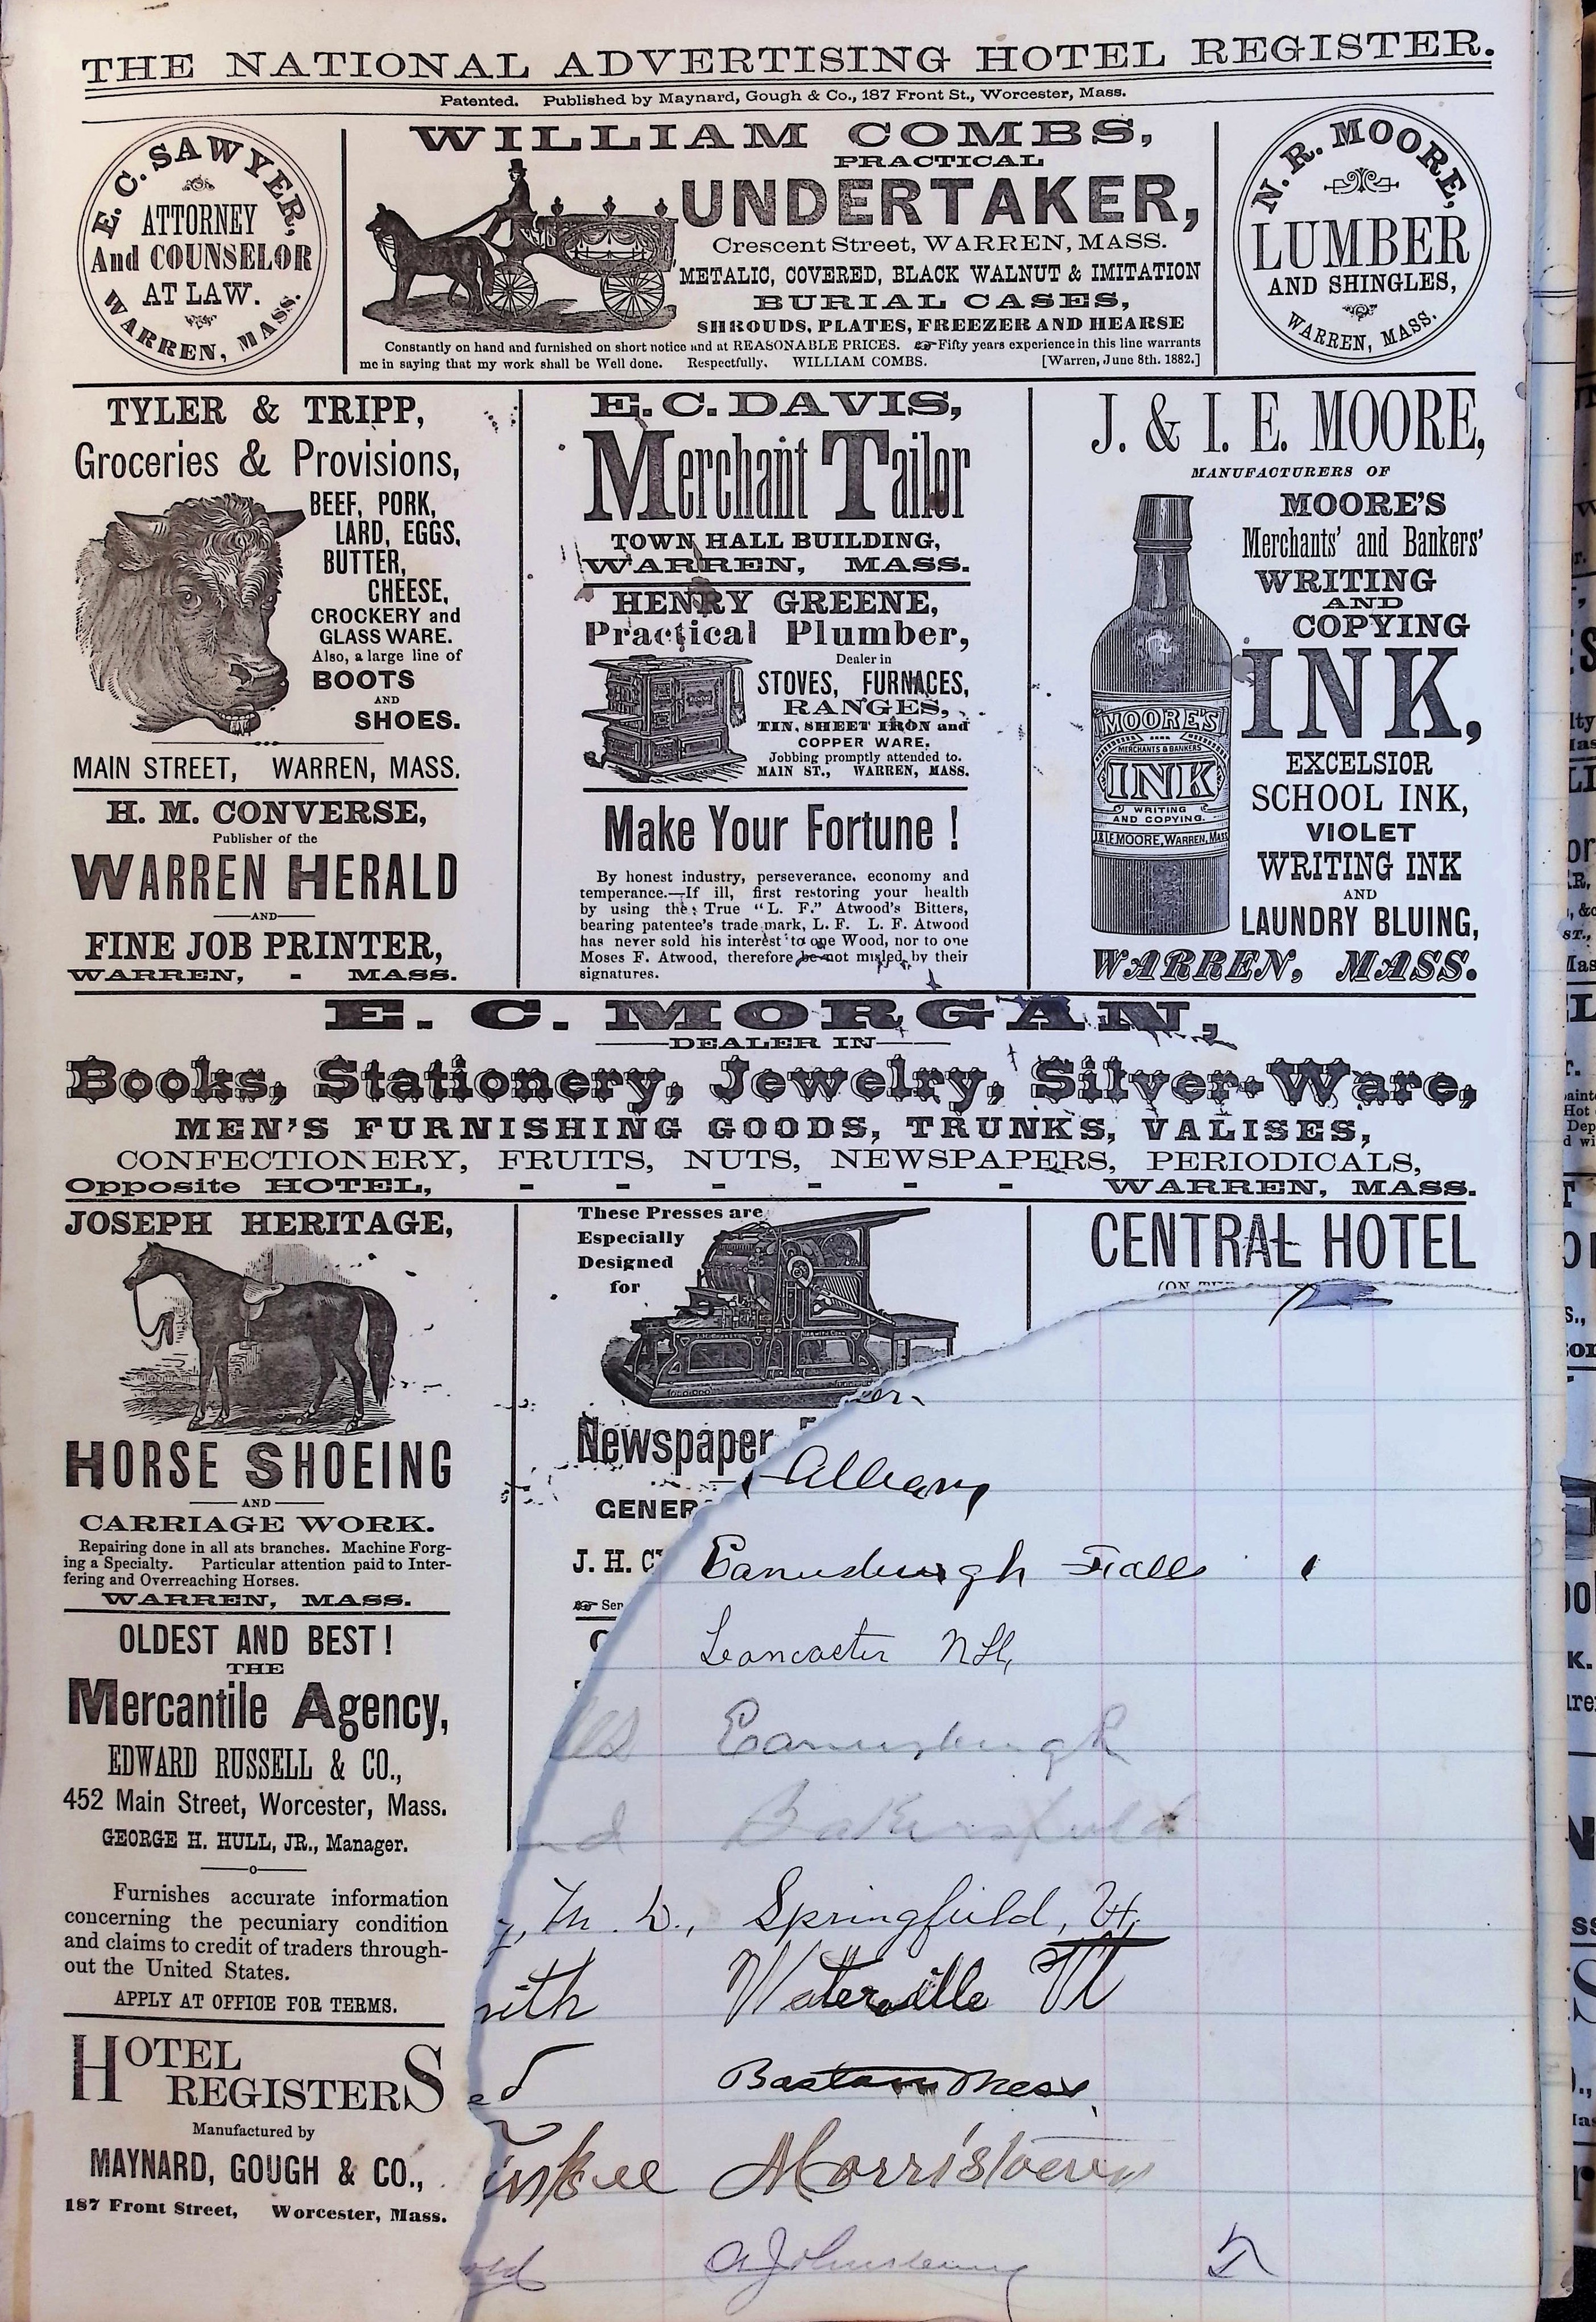 THE NATIONAL ADVERTISING HOTEL REGISTER.
Patented. Published by Maynard, Gough & Co., 187 Front St., Worcester, Mass.
E. C. SAWYER,
ATTORNEY
And COUNSELOR
AT LAW.
WARREN, MASS.
WILLIAM COMBS,
PRACTICAL
UNDERTAKER,
Crescent Street, WARREN, MASS.
METALIC, COVERED, BLACK WALNUT & IMITATION
BURIAL CASES,
SHROUDS, PLATES, FREEZER AND HEARSE
Constantly on hand and furnished on short notice and at REASONABLE PRICES. ☞Fifty years experience in this line warrants
me in saying that my work shall be Well done. Respectfully, WILLIAM COMBS. [Warren, June 8th. 1882.]
N. R. MOORE,
LUMBER
AND SHINGLES,
WARREN, MASS.
TYLER & TRIPP,
Groceries & Provisions,
BEEF, PORK,
LARD, EGGS,
BUTTER,
CHEESE,
CROCKERY and
GLASS WARE.
Also, a large line of
BOOTS
AND
SHOES.
MAIN STREET, WARREN, MASS.
H. M. CONVERSE,
Publisher of the
WARREN HERALD
AND
FINE JOB PRINTER,
WARREN, - MASS.
E. C. DAVIS,
Merchant Tailor
TOWN HALL BUILDING,
WARREN, MASS.
HENRY GREENE,
Practical Plumber,
Dealer in
STOVES, FURNACES,
RANGES,
TIN, SHEET IRON and
COPPER WARE.
Jobbing promptly attended to.
MAIN ST., WARREN, MASS.
Make Your Fortune !
By honest industry, perseverance, economy and
temperance.—If ill, first restoring your health
by using the True "L. F." Atwood's Bitters,
bearing patentee's trade mark, L. F. L. F. Atwood
has never sold his interest to one Wood, nor to one
Moses F. Atwood, therefore be not misled by their
signatures.
J. & I. E. MOORE,
MANUFACTURERS OF
MOORE'S
Merchants' and Bankers'
WRITING
AND
COPYING
INK,
MOORE'S
MERCHANTS & BANKERS
INK
WRITING
AND COPYING.
J.& I.E. MOORE, WARREN, MASS
EXCELSIOR
SCHOOL INK,
VIOLET
WRITING INK
AND
LAUNDRY BLUING,
WARREN, MASS.
E. C. MORGAN,
DEALER IN
Books, Stationery, Jewelry, Silver-Ware,
MEN'S FURNISHING GOODS, TRUNKS, VALISES,
CONFECTIONERY, FRUITS, NUTS, NEWSPAPERS, PERIODICALS,
Opposite HOTEL, - - - - - - WARREN, MASS.
JOSEPH HERITAGE,
HORSE SHOEING
AND
CARRIAGE WORK.
Repairing done in all ats branches. Machine Forg-
ing a Specialty. Particular attention paid to Inter-
fering and Overreaching Horses.
WARREN, MASS.
OLDEST AND BEST !
THE
Mercantile Agency,
EDWARD RUSSELL & CO.,
452 Main Street, Worcester, Mass.
GEORGE H. HULL, JR., Manager.
Furnishes accurate information
concerning the pecuniary condition
and claims to credit of traders through-
out the United States.
APPLY AT OFFICE FOR TERMS.
HOTEL
REGISTERS
Manufactured by
MAYNARD, GOUGH & CO.,
187 Front Street, Worcester, Mass.
These Presses are
Especially
Designed
for
Newspaper
GENER
J. H. C
☞ Ser
CENTRAL HOTEL
(ON THE
Albany
Enusburgh Falls
Lancaster NH,
Enusburgh
nd Bakersfield
, M. D., Springfield, Vt,
ith Waterville Vt
ed Boston Mass,
Morristown